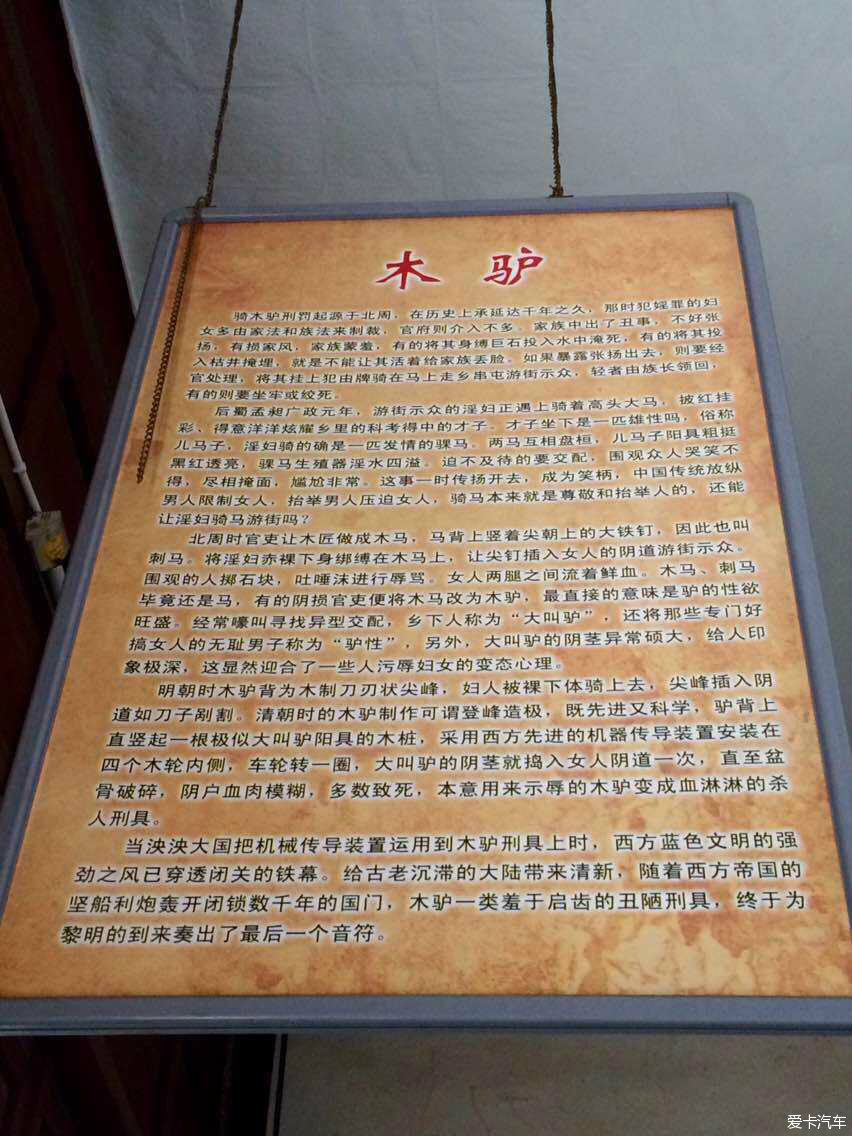 木驴
骑木驴刑罚起源于北周，在历史上承延达千年之久，那时犯婬罪的妇
女多由家法和族法来制裁，官府则介入不多。家族中出了丑事，不好张
扬，有损家风，家族蒙羞，有的将其身缚巨石投入水中淹死，有的将其投
入枯井掩埋，就是不能让其活着给家族丢脸。如果暴露张扬出去，则要经
官处理，将其挂上犯由牌骑在马上走乡串屯游街示众，轻者由族长领回，
有的则要坐牢或绞死。
后蜀孟昶广政元年，游街示众的淫妇正遇上骑着高头大马，披红挂
彩、得意洋洋炫耀乡里的科考得中的才子。才子坐下是一匹雄性吗，俗称
儿马子，淫妇骑的确是一匹发情的骒马。两马互相盘桓，儿马子阳具粗挺
黑红透亮，骒马生殖器淫水四溢。迫不及待的要交配，围观众人哭笑不
得，尽相掩面，尴尬非常。这事一时传扬开去，成为笑柄，中国传统放纵
男人限制女人，抬举男人压迫女人，骑马本来就是尊敬和抬举人的，还能
让淫妇骑马游街吗？
北周时官吏让木匠做成木马，马背上竖着尖朝上的大铁钉，因此也叫
刺马。将淫妇赤裸下身绑缚在木马上，让尖钉插入女人的阴道游街示众。
围观的人掷石块，吐唾沫进行辱骂。女人两腿之间流着鲜血。木马、刺马
毕竟还是马，有的阴损官吏便将木马改为木驴，最直接的意味是驴的性欲
旺盛。经常嚎叫寻找异型交配，乡下人称为“大叫驴”，还将那些专门好
搞女人的无耻男子称为“驴性”，另外，大叫驴的阴茎异常硕大，给人印
象极深，这显然迎合了一些人污辱妇女的变态心理。
明朝时木驴背为木制刀刃状尖峰，妇人被裸下体骑上去，尖峰插入阴
道如刀子剐割。清朝时的木驴制作可谓登峰造极，既先进又科学，驴背上
直竖起一根极似大叫驴阳具的木桩，采用西方先进的机器传导装置安装在
四个木轮内侧，车轮转一圈，大叫驴的阴茎就捣入女人阴道一次，直至盆
骨破碎，阴户血肉模糊，多数致死，本意用来示辱的木驴变成血淋淋的杀
人刑具。
当泱泱大国把机械传导装置运用到木驴刑具上时，西方蓝色文明的强
劲之风已穿透闭关的铁幕。给古老沉滞的大陆带来清新，随着西方帝国的
坚船利炮轰开闭锁数千年的国门，木驴一类羞于启齿的丑陋刑具，终于为
黎明的到来奏出了最后一个音符。
爱卡汽车